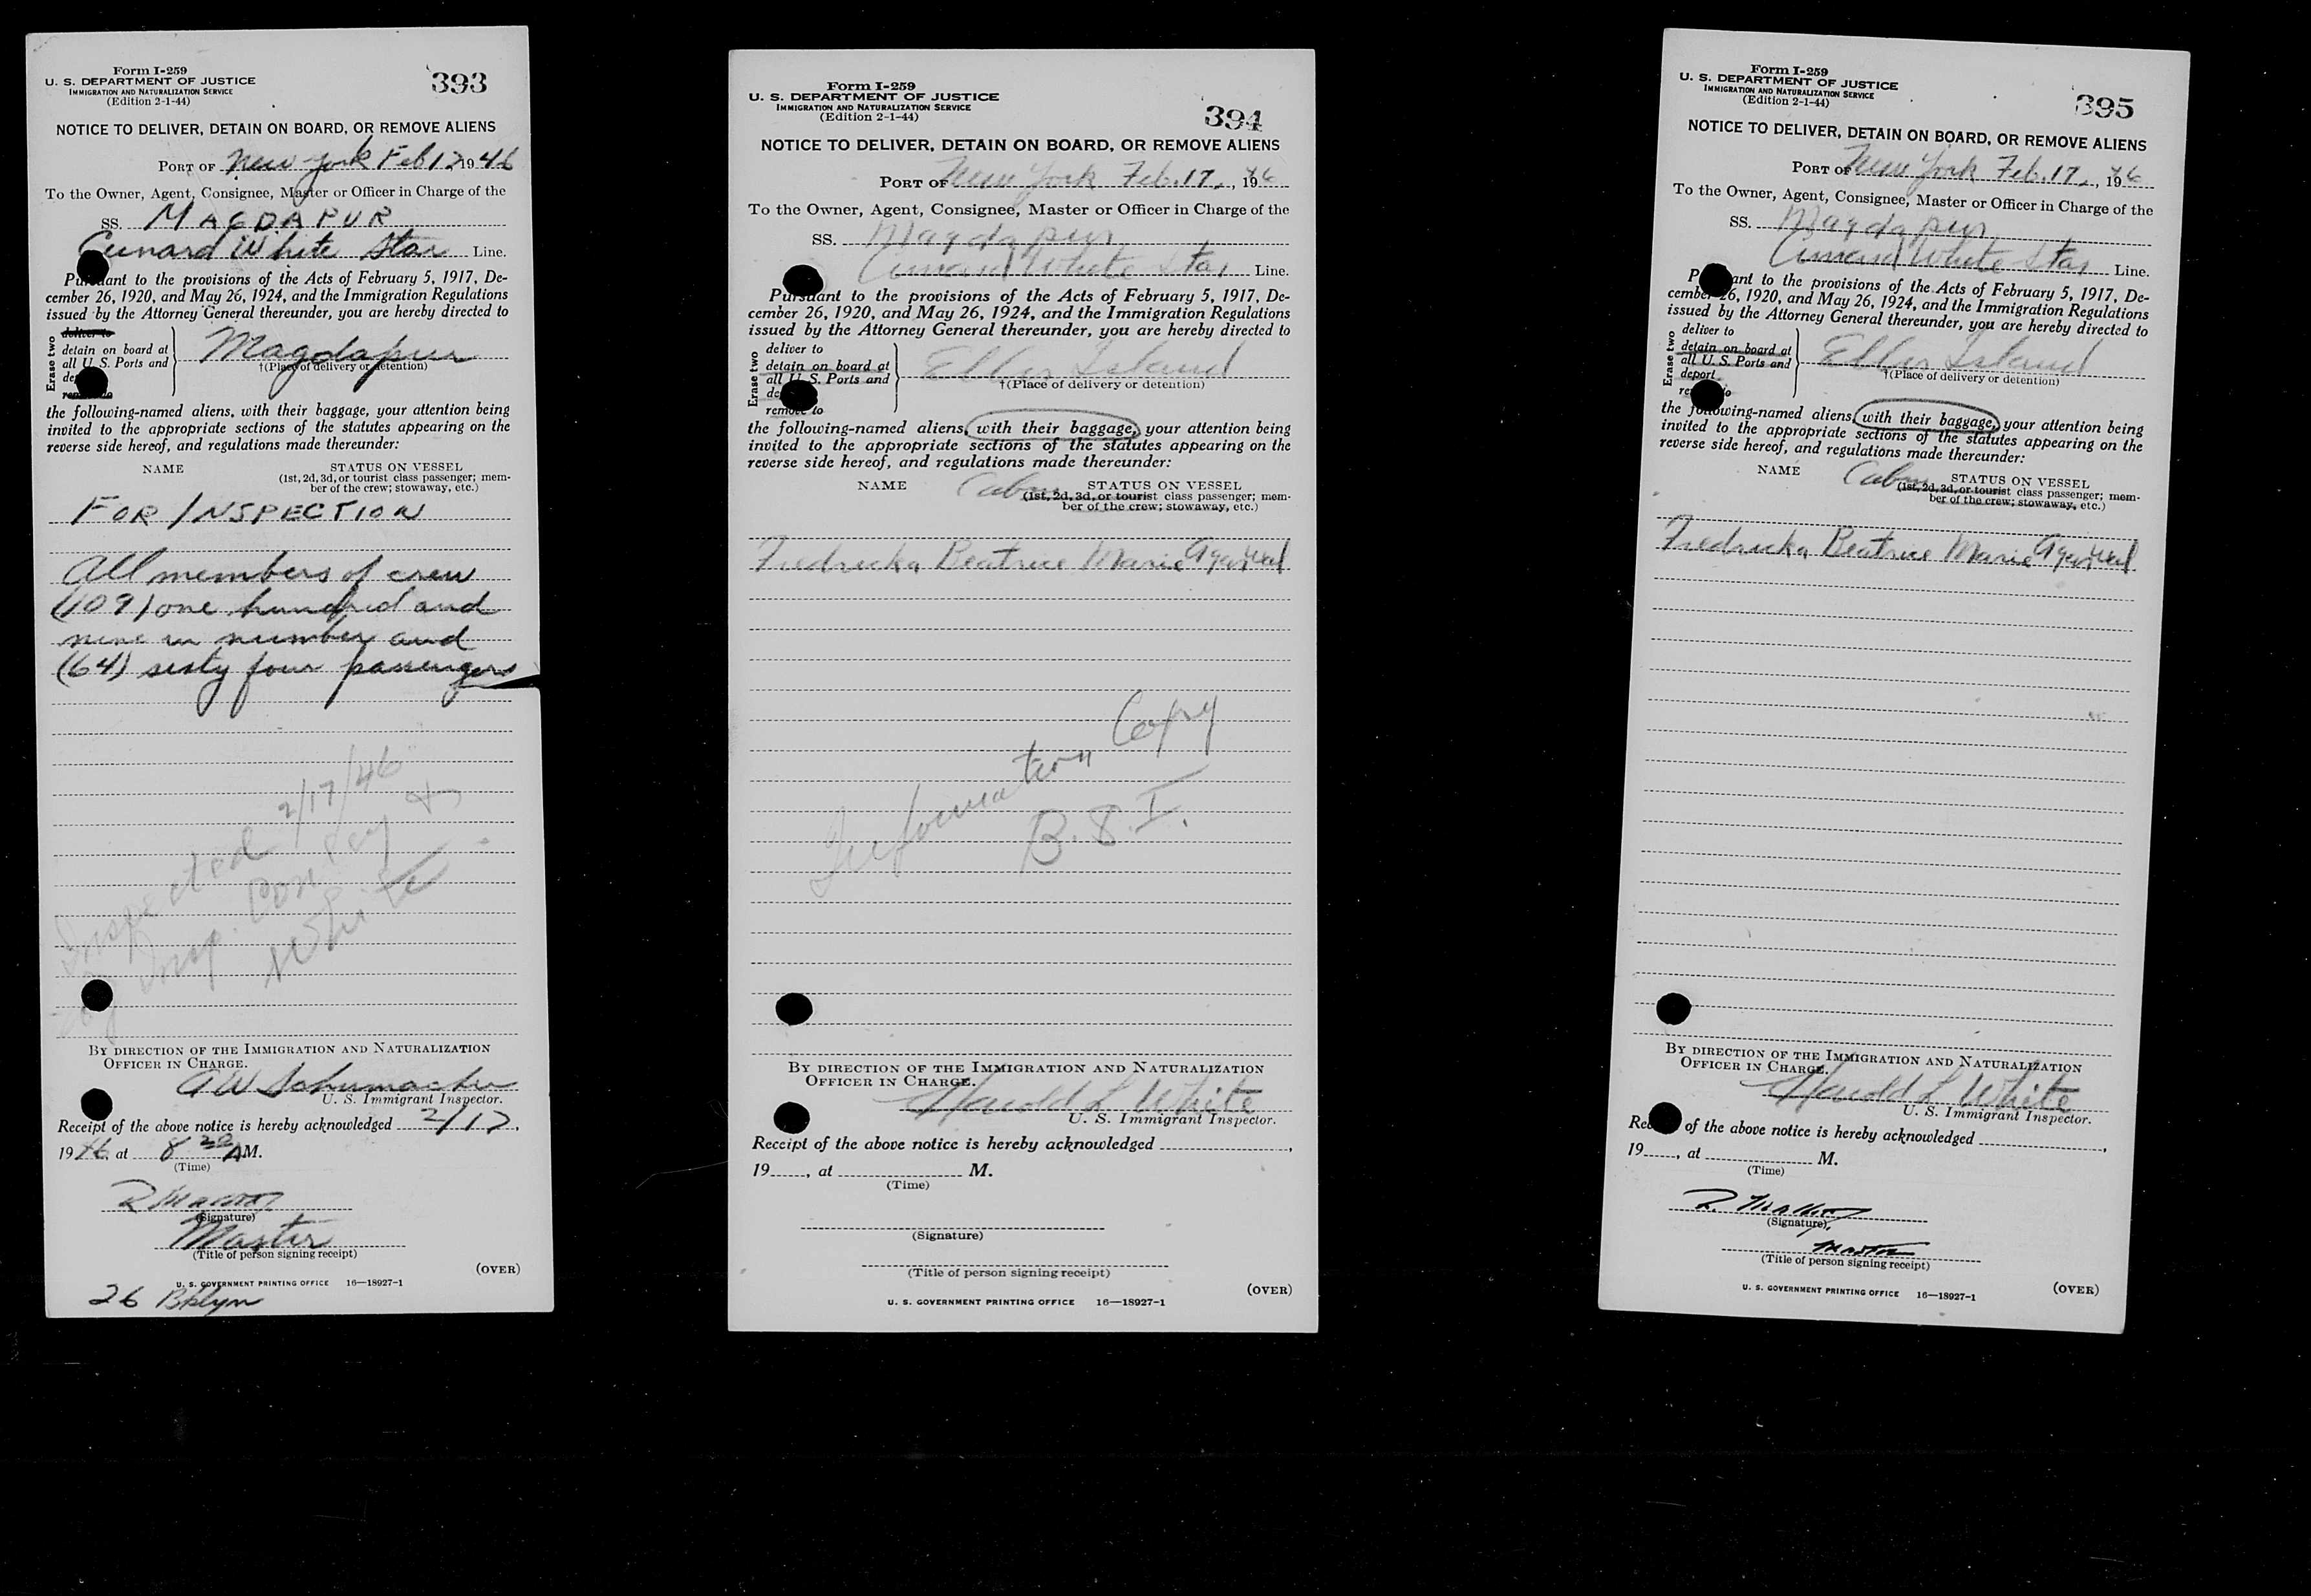 Form I-259
U. S. DEPARTMENT OF JUSTICE
IMMIGRATION AND NATURALIZATION SERVICE
(Edition 2-1-44)
393
NOTICE TO DELIVER, DETAIN ON BOARD, OR REMOVE ALIENS
PORT OF New York Feb 17 1946
To the Owner, Agent, Consignee, Master or Officer in Charge of the
SS. MAGDAPUR
Cunard White Star Line.
Pursuant to the provisions of the Acts of February 5, 1917, De-
cember 26, 1920, and May 26, 1924, and the Immigration Regulations
issued by the Attorney General thereunder, you are hereby directed to
Erase two
deliver to
detain on board at
all U. S. Ports and
remove to
Magdapur
†(Place of delivery or detention)
the following-named aliens, with their baggage, your attention being
invited to the appropriate sections of the statutes appearing on the
reverse side hereof, and regulations made thereunder:
NAME STATUS ON VESSEL
(1st, 2d, 3d, or tourist class passenger; mem-
ber of the crew; stowaway, etc.)
FOR INSPECTION
All members of crew
(109) one hundred and
nine in number and
(64) sixty four passengers
Inspected 2/17/46
by Insp. &
White
BY DIRECTION OF THE IMMIGRATION AND NATURALIZATION
OFFICER IN CHARGE.
A W Schumacher
U. S. Immigrant Inspector.
Receipt of the above notice is hereby acknowledged 2/17,
1946, at 8 30 AM.
(Time)
(Signature)
Master
(Title of person signing receipt)
(OVER)
U. S. GOVERNMENT PRINTING OFFICE 16—18927-1
26 Bklyn
Form I-259
U. S. DEPARTMENT OF JUSTICE
IMMIGRATION AND NATURALIZATION SERVICE
(Edition 2-1-44)
394
NOTICE TO DELIVER, DETAIN ON BOARD, OR REMOVE ALIENS
PORT OF New York Feb. 17, 1946
To the Owner, Agent, Consignee, Master or Officer in Charge of the
SS. Magdapur
Cunard White Star Line.
Pursuant to the provisions of the Acts of February 5, 1917, De-
cember 26, 1920, and May 26, 1924, and the Immigration Regulations
issued by the Attorney General thereunder, you are hereby directed to
Erase two
deliver to
detain on board at
all U. S. Ports and
remove to
Ellis Island
†(Place of delivery or detention)
the following-named aliens, with their baggage, your attention being
invited to the appropriate sections of the statutes appearing on the
reverse side hereof, and regulations made thereunder:
NAME Cabin STATUS ON VESSEL
(1st, 2d, 3d, or tourist class passenger; mem-
ber of the crew; stowaway, etc.)
Fredricka Beatrice Marie Agarwal
Information Copy
B. S. I.
BY DIRECTION OF THE IMMIGRATION AND NATURALIZATION
OFFICER IN CHARGE.
Harold L White
U. S. Immigrant Inspector.
Receipt of the above notice is hereby acknowledged ,
19 , at M.
(Time)
(Signature)
(Title of person signing receipt)
(OVER)
U. S. GOVERNMENT PRINTING OFFICE 16—18927-1
Form I-259
U. S. DEPARTMENT OF JUSTICE
IMMIGRATION AND NATURALIZATION SERVICE
(Edition 2-1-44)
395
NOTICE TO DELIVER, DETAIN ON BOARD, OR REMOVE ALIENS
PORT OF New York Feb. 17, 1946
To the Owner, Agent, Consignee, Master or Officer in Charge of the
SS. Magdapur
Cunard White Star Line.
Pursuant to the provisions of the Acts of February 5, 1917, De-
cember 26, 1920, and May 26, 1924, and the Immigration Regulations
issued by the Attorney General thereunder, you are hereby directed to
Erase two
deliver to
detain on board at
all U. S. Ports and
deport.
Ellis Island
†(Place of delivery or detention)
the following-named aliens, with their baggage, your attention being
invited to the appropriate sections of the statutes appearing on the
reverse side hereof, and regulations made thereunder:
NAME Cabin STATUS ON VESSEL
(1st, 2d, 3d, or tourist class passenger; mem-
ber of the crew; stowaway, etc.)
Fredricka Beatrice Marie Agarwal
BY DIRECTION OF THE IMMIGRATION AND NATURALIZATION
OFFICER IN CHARGE.
Harold L White
U. S. Immigrant Inspector.
Receipt of the above notice is hereby acknowledged ,
19 , at M.
(Time)
(Signature)
Master
(Title of person signing receipt)
(OVER)
U. S. GOVERNMENT PRINTING OFFICE 16—18927-1